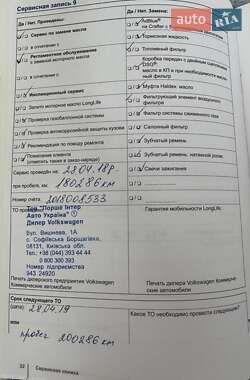 Сервисная запись 9
auto.RIA
Да / Нет. Проведены:
Сервис по замене масла
в сочетании с
Регламентное обслуживание
с заменой моторного масла
в сочетании с
Инспекционный сервис
Залито моторное масло LongLife
Проверка газобаллонной системы
Проверка антикоррозийной защиты кузова
Рекомендация по поводу ремонта
Помещение клиента
Сервис проведён на: 28.04.18р.
при пробеге, км: 180286 км
Номер счёта: 2018008533
ТО
Тов "Порше Інтер
Авто Україна"
Дилер Volkswagen
Вул. Вишнева, 1А
с. Софіївська Борщагівка,
08131, Київська обл.
Тел. +38 (044) 393 44 44
0 800 300 393
Номер підприємства
943 24920
Печать дилерского предприятия Volkswagen
Коммерческие автомобили
Срок следующего ТО
28.04.19
или
пробег 200286 км
32 Сервисная книжка
Да / Нет. Замена:
AdBlue®
на Crafter с
Тормозная жидкость
Топливный фильтр
Коробка передач с двойным сцеплением
DSG®:
масло в КП и при необходимости масля-
ный фильтр
Муфта Haldex: масло
Фильтрующий элемент воздушного
фильтра
Фильтр системы сжиженного газа
Салонный фильтр
Зубчатый ремень
Зубчатый ремень, натяжной ролик
Свечи зажигания
Гарантия мобильности LongLife
Печать дилера Volkswagen Коммерче-
ские автомобили
Какое ТО необходимо провести следующим?